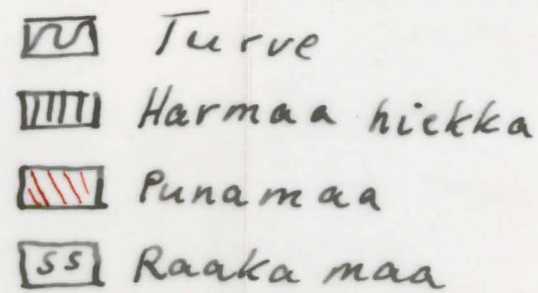 Turve
Harmaa hiekka
Punamaa
ss Raaka maa